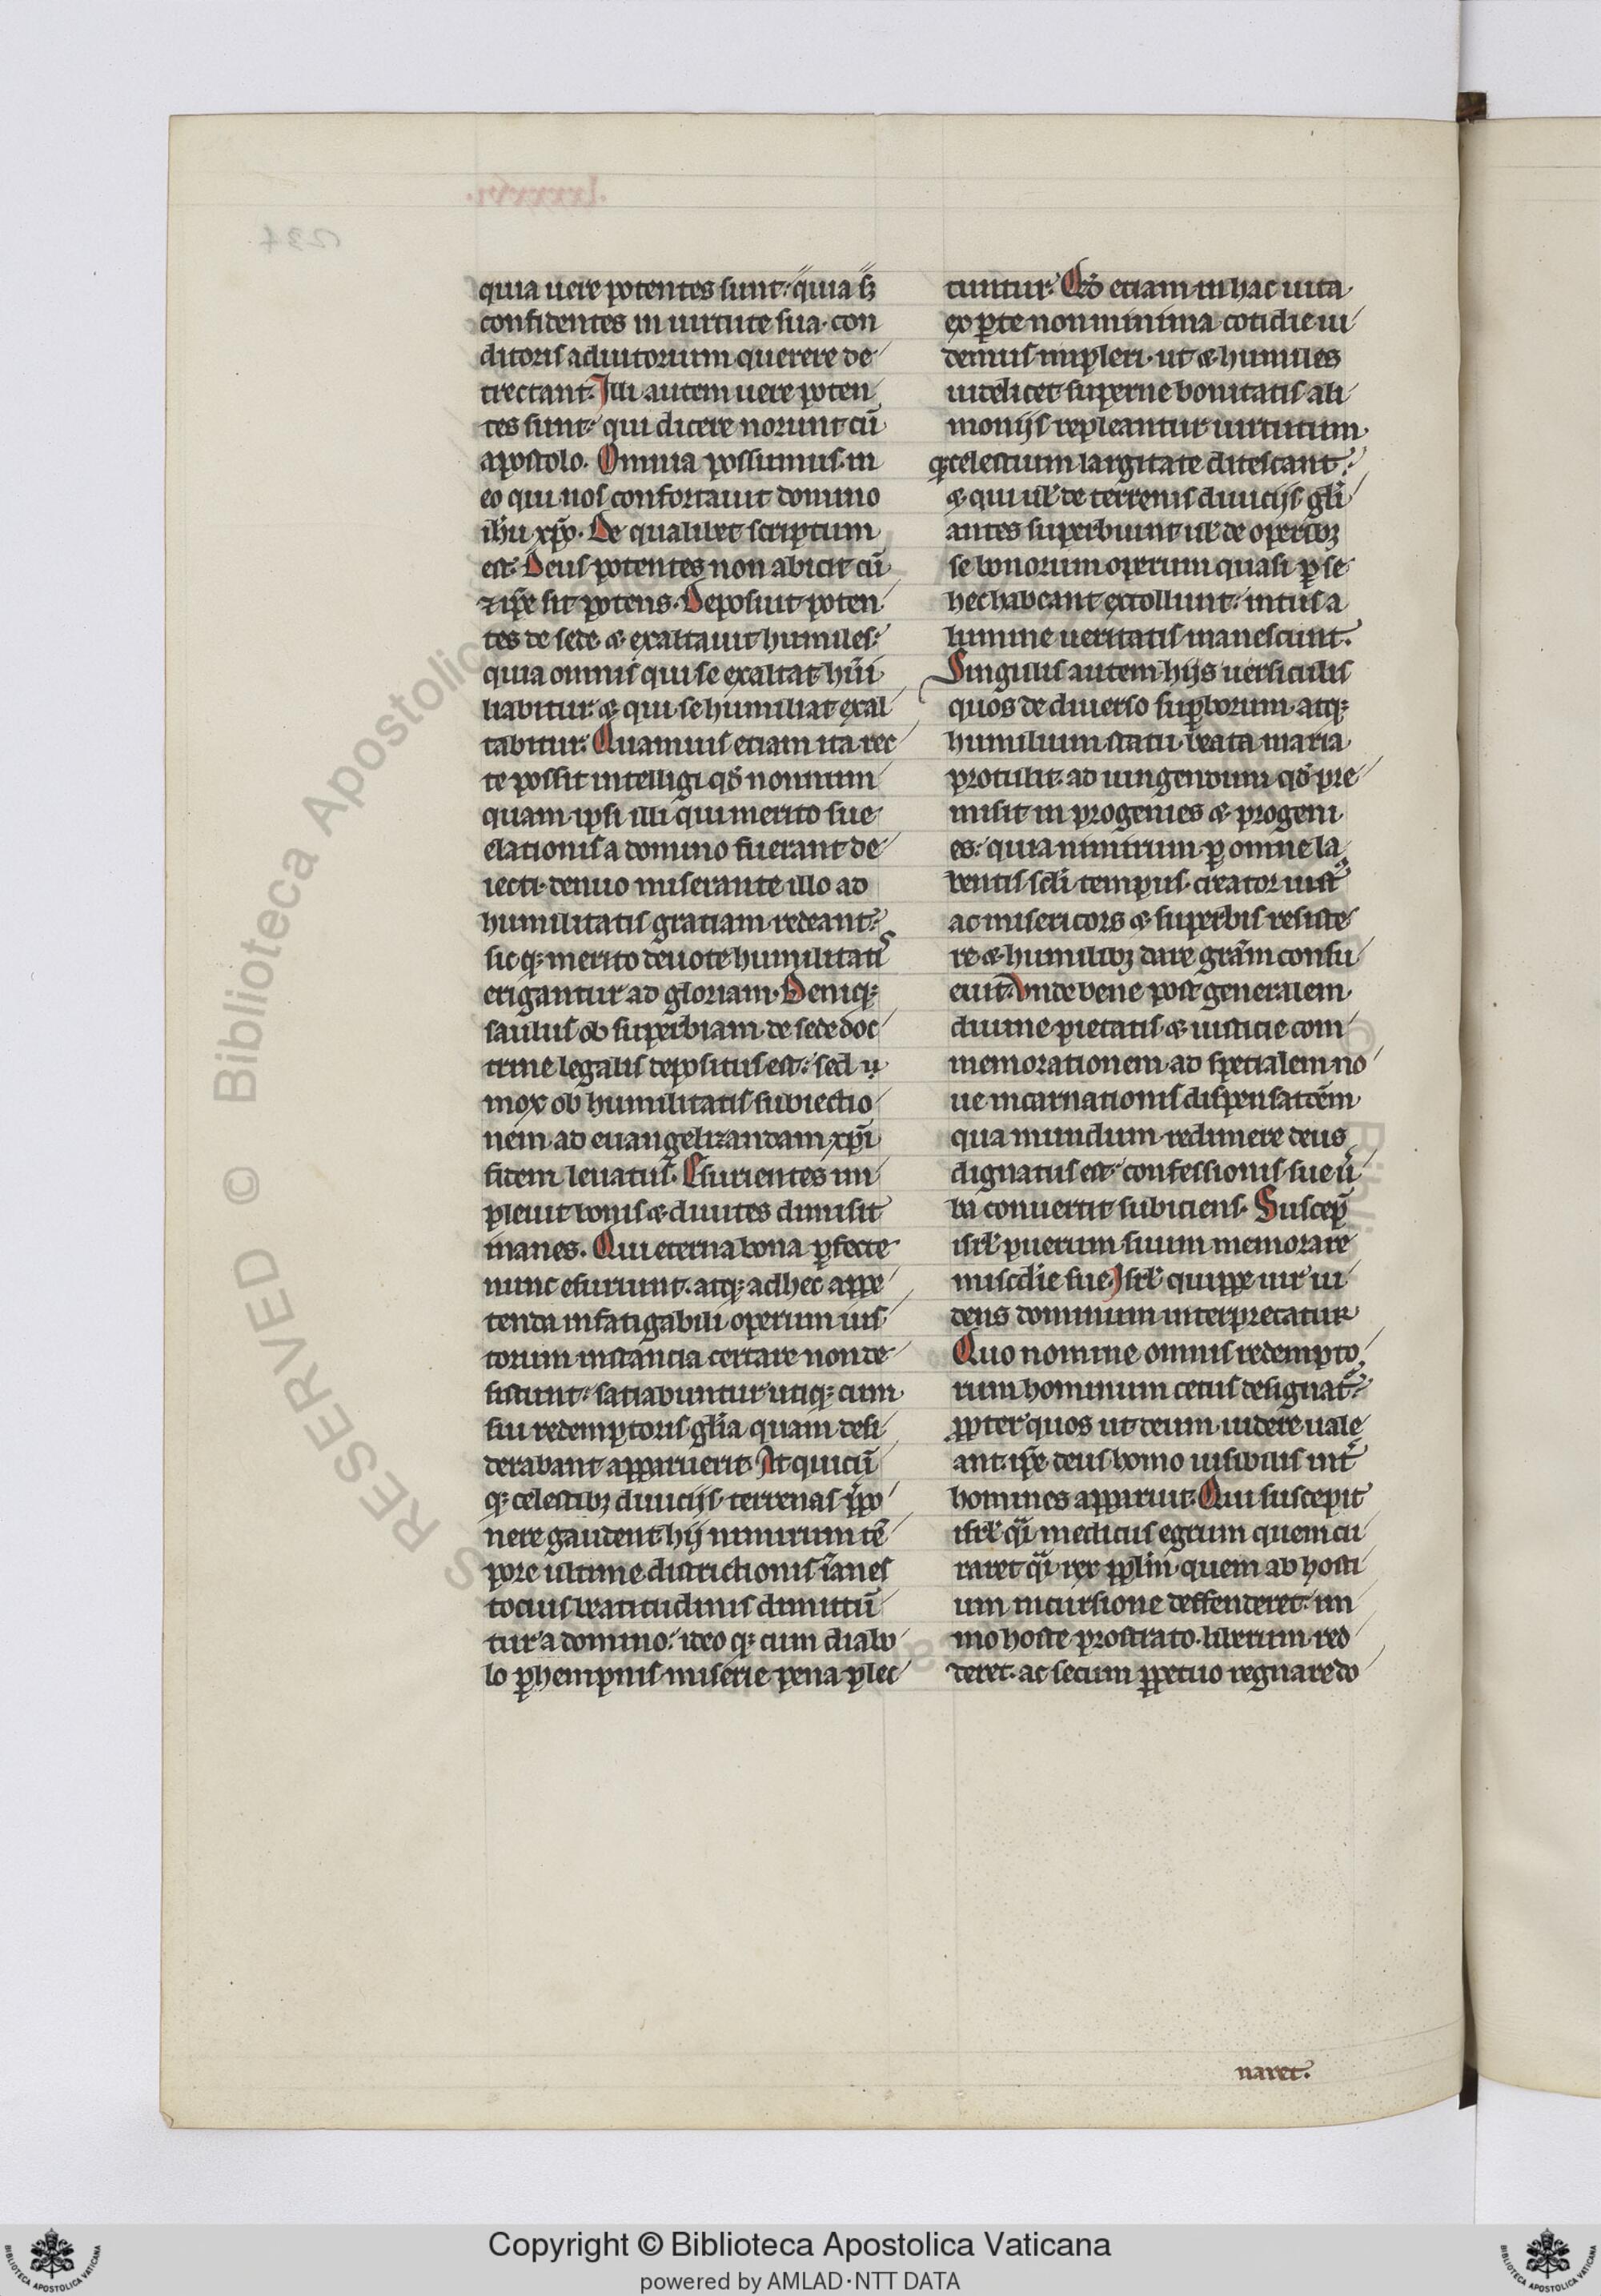 quia uere potentes sunt: quia s&#42863;
confidentes in uirtute sua. con
ditoris adiutorium querere de
trectant. Illi autem uere poten
tes sunt: qui dicere norunt cū
apostolo. Omnia possumus in
eo qui nos confortauit domino
ihu xp̄o. De qualibet scriptum
est: Deus potentes non abicit cū
⁊ ip̄e sit potens. Deposuit poten
tes de sede & exaltauit humiles:
quia omnis qui se exaltat hūi
liabitur: & qui se humiliat exal
tabitur. Quamuis etiam ita rec
te possit intelligi qđ nonnun
quam ipsi illi qui merito sue
elationis a domino fuerant de
iecti. denuo miserante illo ad
humilitatis gratiam redeant:
sicq; merito deuote humilitatis
erigantur ad gloriam. Deniq;
saulus ob superbiam de sede doc
trine legalis depositus est: sed
mox ob humilitatis subiectio
nem ad euangelizandam xp̄i
fidem leuatus. Esurientes im
pleuit bonis & diuites dimisit
inanes. Qui eterna bona ꝑfecte
nunc esuriunt. atq; ad hec appe
tenda infatigabili operum uis
torum instancia certare non de
sistunt: satiabuntur utiq; cum
sui redemptoris gl̄ia quam desi
derabant apparuerit. At quicū
q; celestibꝫ diuicijs terrenas p̄po
nere gaudent hij nimirum tē
pore ultime districtionis īanes
tocius beatitudinis dimittū
tur a domino: ideo q; cum diabo
lo ꝑhempnis miserie pena plec
tuntur. Qđ etiam in hac uita
ex ꝑte non minima cotidie ui
demus impleri. ut & humiles
uidelicet superne bonitatis ali
monijs repleantur uirtutum
q; celestium largitate ditescant:
& qui ul̄ de terrenis diuicijs gl̄i
antes superbiunt ul̄ de operibꝫ
se bonorum operum quasi ꝑ se
hec habeant extollunt: intus a
lumine ueritatis inanescunt.
Singulis autem hijs uersiculis
quos de diuerso suꝑborum atq;
humilium statu beata maria
protulit: ad iungendum qđ pre
misit in progenies & progeni
es: quia nimirum ꝑ omne la
bentis scl̄i tempus. creator iust᷒
ac misericors & superbis resiste
re & humilibꝫ dare grām consu
euit. Vnde bene post generalem
diuine pietatis & iusticie com
memorationem. ad specialem no
ue incarnationis dispensatōem
qua mundum redimere deus
dignatus est: confessionis sue ū
ba conuertit subiciens. Suscep̄
isrl̄ puerum suum memorare
miscdie sue. Isrl̄ quippe uir ui
dens dominum interpretatur
Quo nomine omnis redempto
rum hominum cetus designat᷑:
ꝓpter quos ut deum uidere uale
ant. ip̄e deus homo uisibilis int̄
homines apparuit. Qui suscepit
isrl̄ q̄i medicus egrum quem cu
raret q̄i rex ppl̄m quem ab hosti
um incursione deffenderet: im
mo hoste prostrato. liberum red
deret. ac secum ꝑpetuo regnare do
naret.
Copyright © Biblioteca Apostolica Vaticana
powered by AMLAD·NTT DATA